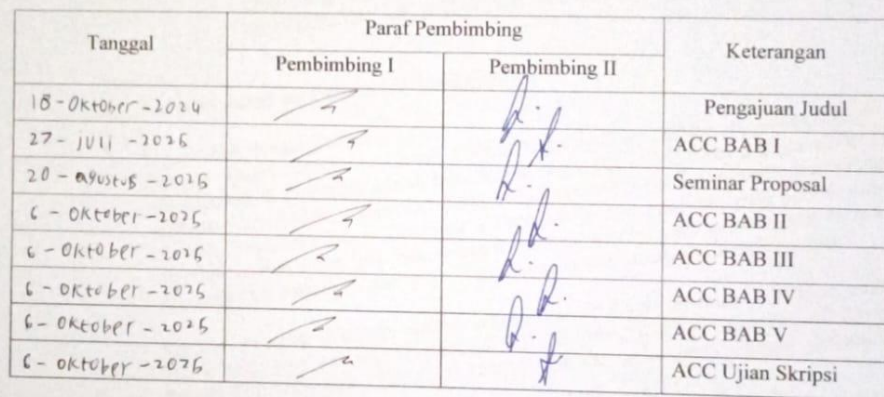 Tanggal Paraf Pembimbing Keterangan
Pembimbing I Pembimbing II
18 - Oktober - 2024 Pengajuan Judul
27 - juli - 2025 ACC BAB I
20 - agustus - 2025 Seminar Proposal
6 - Oktober - 2025 ACC BAB II
6 - Oktober - 2025 ACC BAB III
6 - Oktober - 2025 ACC BAB IV
6 - Oktober - 2025 ACC BAB V
6 - Oktober - 2025 ACC Ujian Skripsi